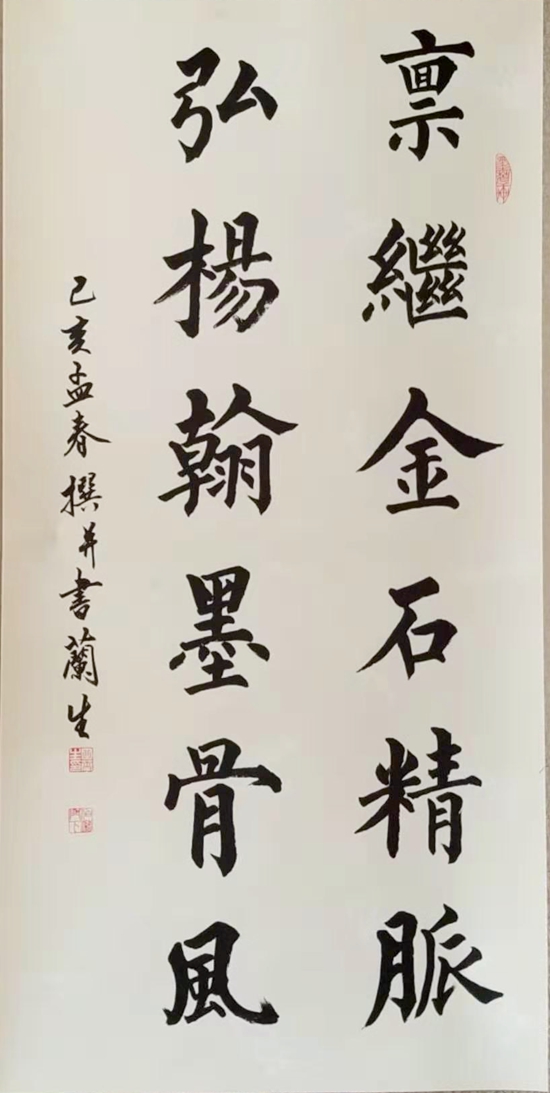 禀繼金石精脈
弘楊翰墨骨風
己亥孟春撰并書蘭生